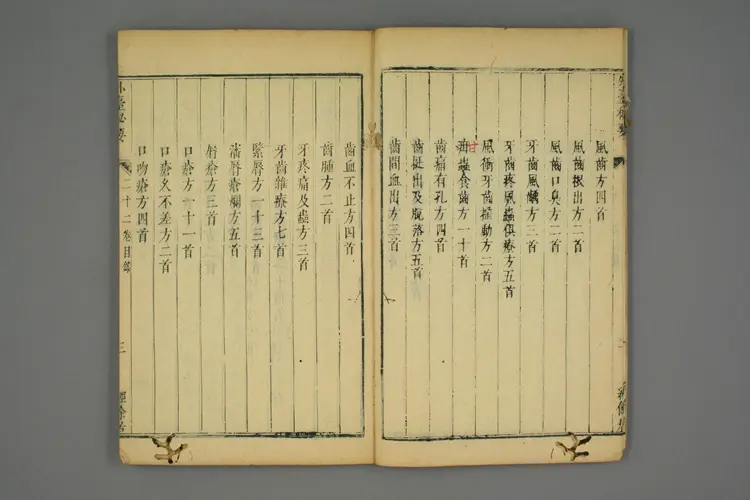 風齒方四首
風齒根出方二首
風齒口臭方二首
牙齒風齲方三首
牙齒疼風蟲俱療方五首
風衝牙齒搖動方二首
甘
蟲食齒方一十首
齒痛有孔方四首
齒挺出及脫落方五首
齒間血出方三首
齒血不止方四首
齒腫方二首
牙疼痛及蟲方三首
牙齒雜療方七首
緊脣方一十三首
瀋脣瘡爛方五首
瘡方三首
口瘡方一十一首
口瘡久不差方二首
口吻瘡方四首
外臺秘要
二十二卷目錄
三